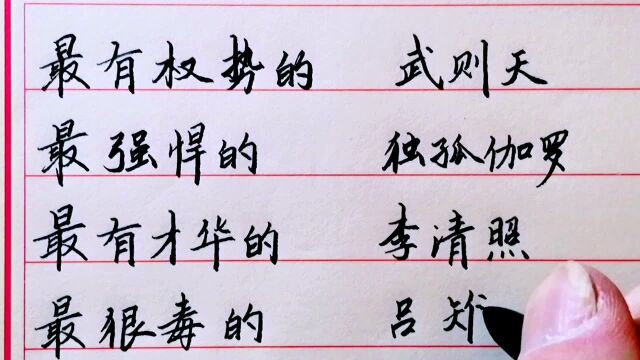 最有权势的 武则天
最强悍的 独孤伽罗
最有才华的 李清照
最狠毒的 吕